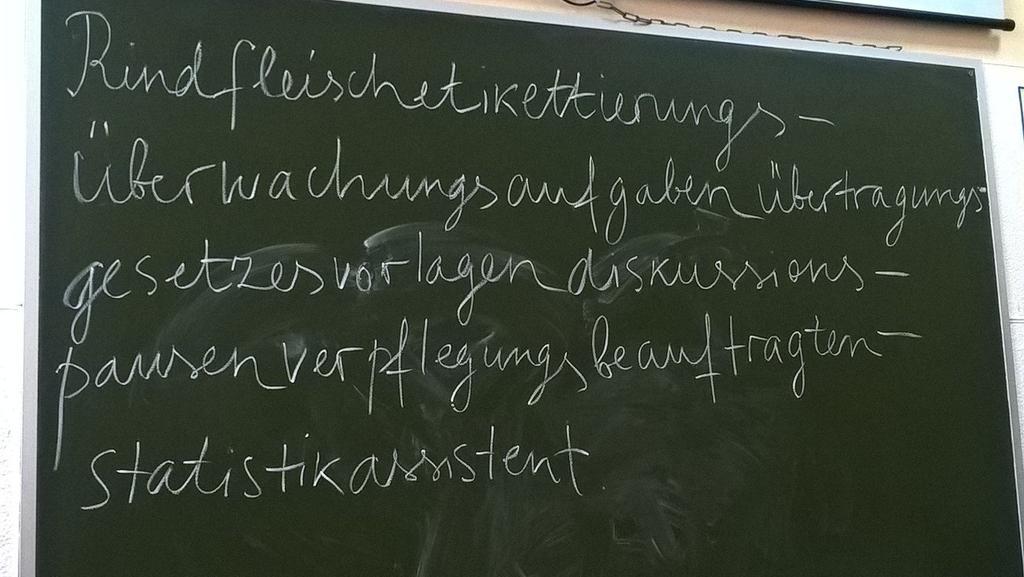 Rindfleischetikettierungs-
überwachungsaufgabenübertragungs-
gesetzesvorlagendiskussions-
pausenverpflegungsbeauftragten-
statistikassistent